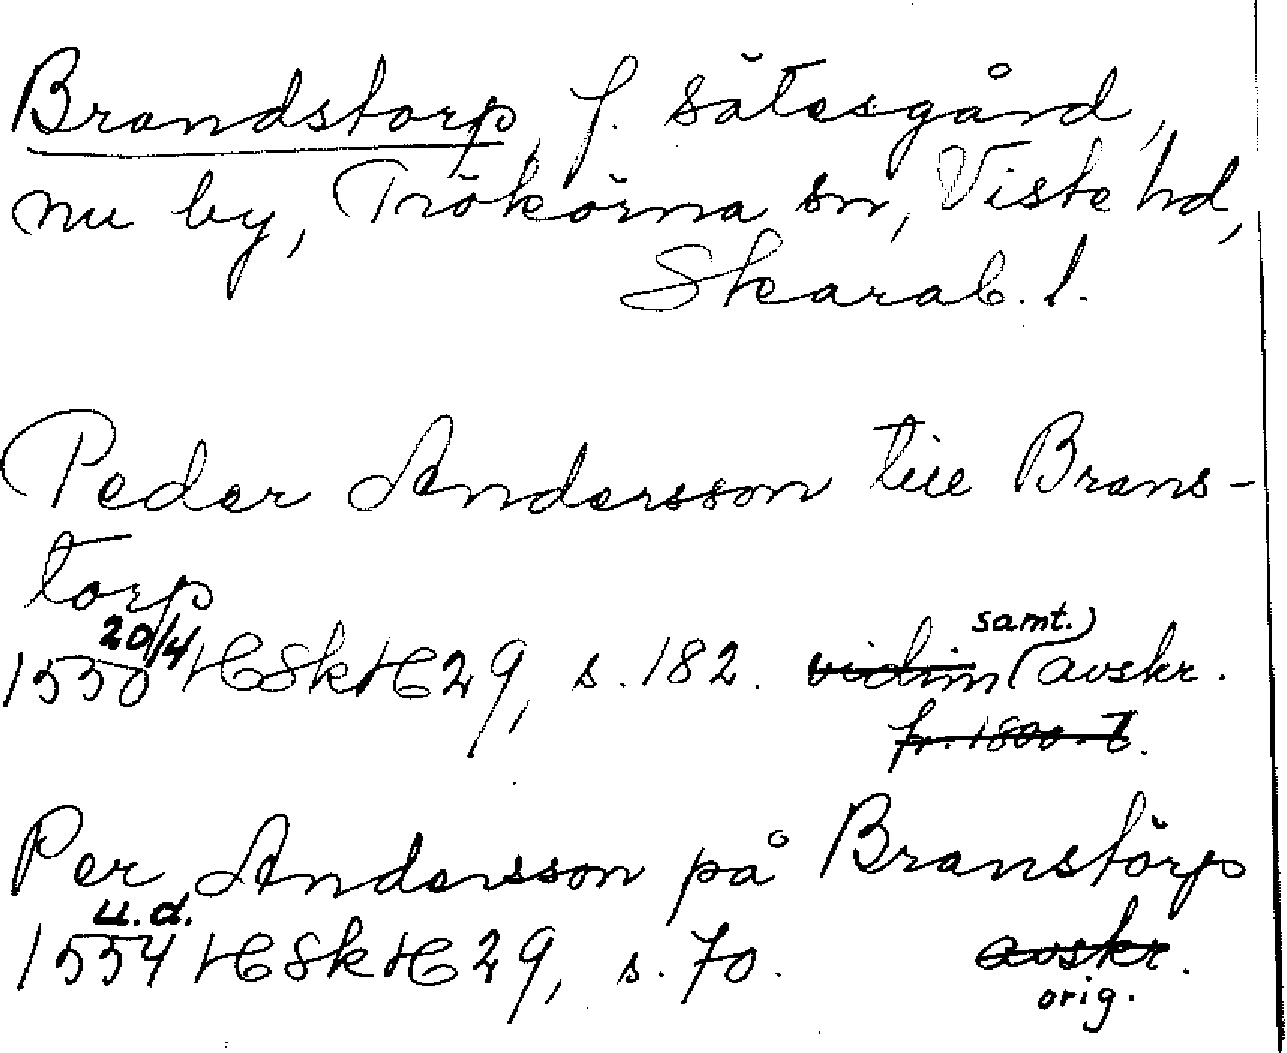 Brandstorp, f. sätesgård,
nu by, Trökörna sn, Viste hd,
Skarab. l.
Peder Andersson till Brans-
torp
20/4 samt.
1550 HSkH 29, s. 182. vidim avskr.
fr. 1800-t.
Per Andersson på Branstörp
u.d.
1554 HSkH 29, s. 70. avskr.
orig.